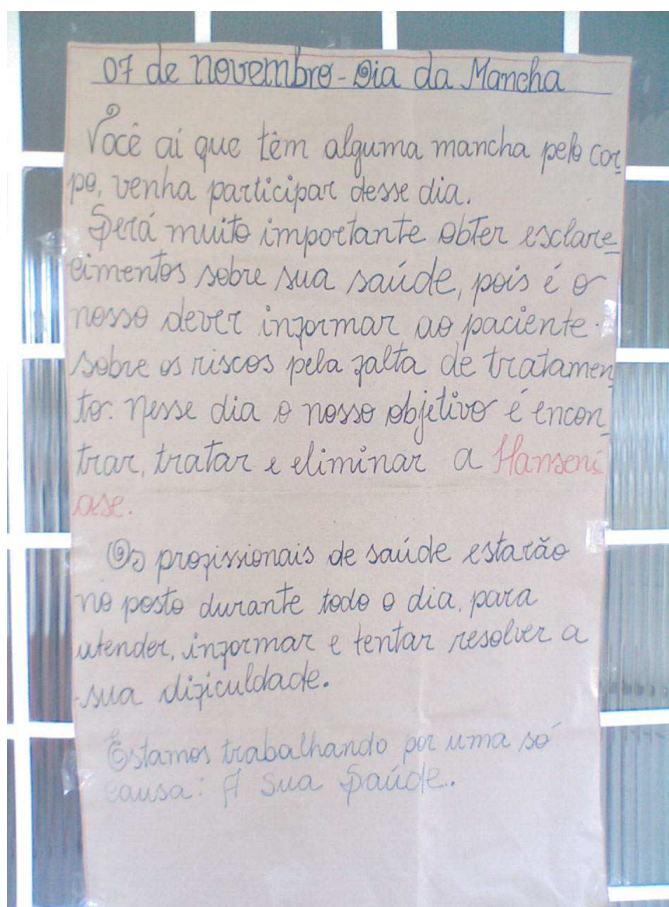 07 de novembro - Dia da Mancha
Você aí que têm alguma mancha pelo cor_
po, venha participar desse dia.
Será muito importante obter esclare_
cimentos sobre sua saúde, pois é o
nosso dever informar ao paciente.
sobre os riscos pela falta de tratamen_
to. nesse dia o nosso objetivo é encon_
trar, tratar e eliminar a Hansení
ase.
Os profissionais de saúde estarão
no posto durante todo o dia, para
atender, informar e tentar resolver a
sua dificuldade.
Estamos trabalhando por uma só
causa: A Sua Saúde..